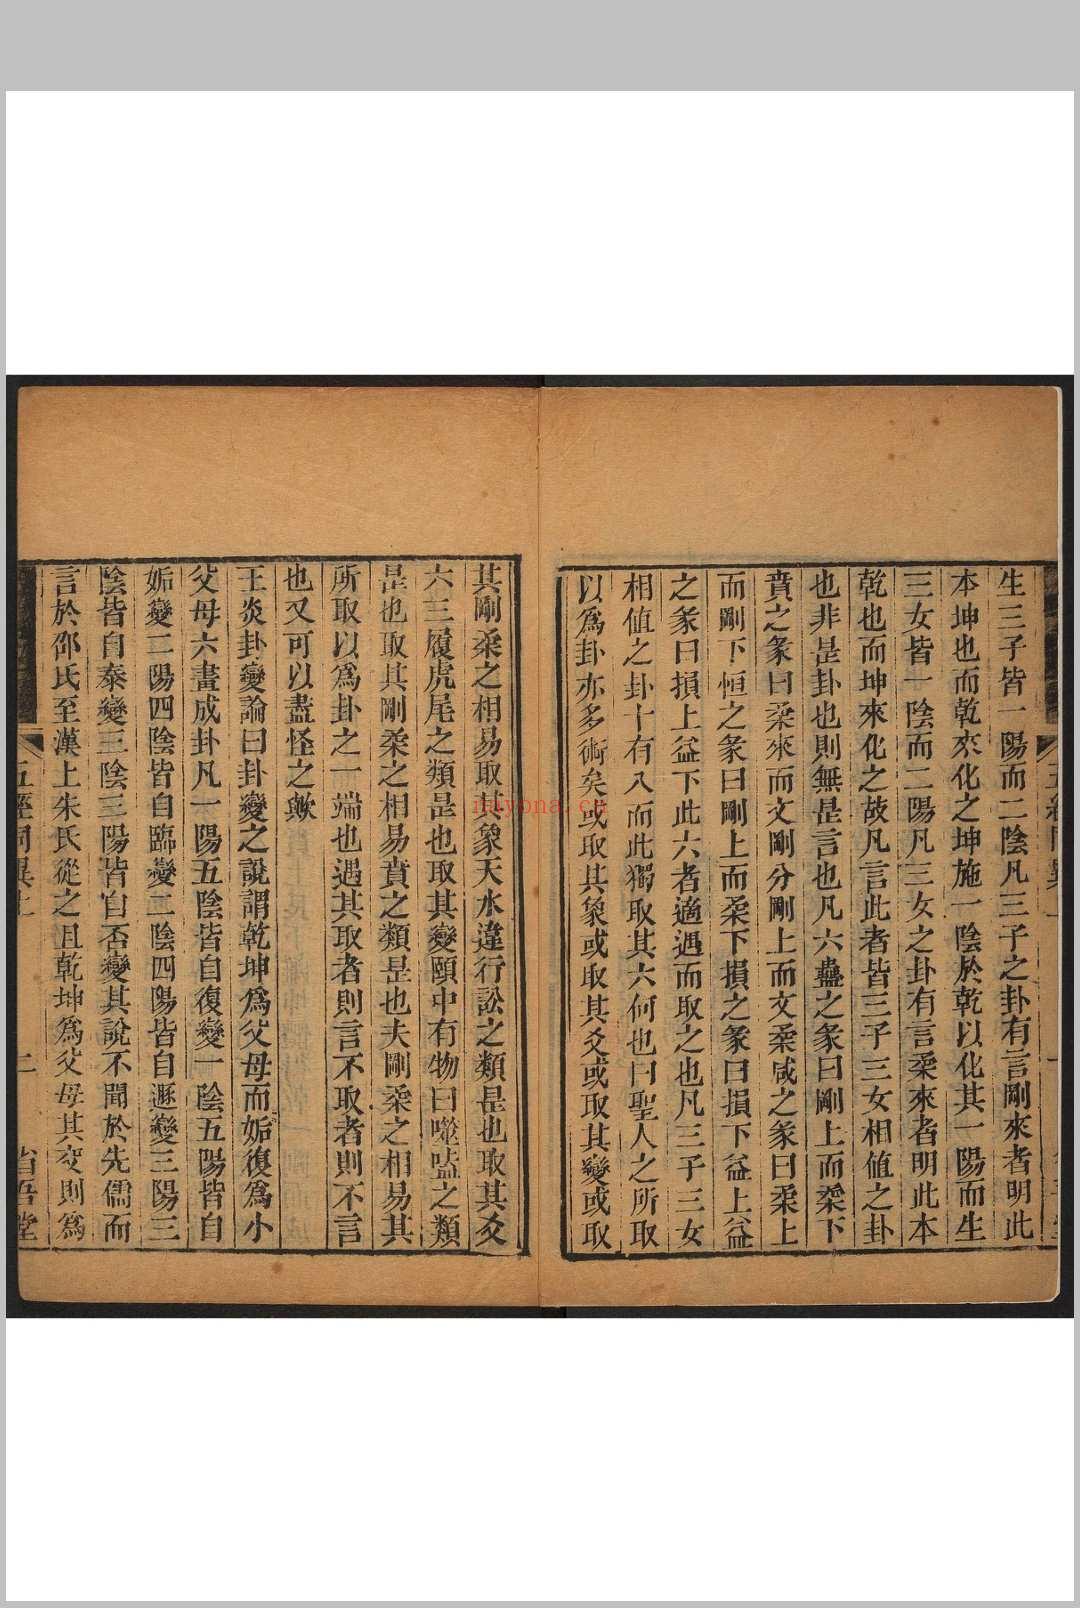 生三子皆一陽而二陰凡三子之卦有言剛來者明此
本坤也而乾來化之坤施一陰於乾以化其一陽而生
三女皆一陰而二陽凡三女之卦有言柔來者明此本
乾也而坤來化之故凡言此者皆三子三女相值之卦
也非是卦也則無是言也凡六蠱之彖曰剛上而柔下
賁之彖曰柔來而文剛分剛上而文柔咸之彖曰柔上
而剛下恒之彖曰剛上而柔下損之彖曰損下益上益
之彖曰損上益下此六者適遇而取之也凡三子三女
相值之卦十有八而此獨取其六何也曰聖人之所取
以爲卦亦多術矣或取其象或取其爻或取其變或取
其剛柔之相易取其象天水違行訟之類是也取其爻
六三履虎尾之類是也取其變頤中有物曰噬嗑之類
是也取其剛柔之相易賁之類是也夫剛柔之相易其
所取以爲卦之一端也遇其取者則言不取者則不言
也又可以盡怪之歟
王炎卦變論曰卦變之說謂乾坤爲父母而姤復爲小
父母六畫成卦凡一陽五陰皆自復變一陰五陽皆自
姤變二陽四陰皆自臨變二陰四陽皆自遯變三陽三
陰皆自泰變三陰三陽皆自否變其說不聞於先儒而
言於邵氏至漢上朱氏從之且乾坤爲父母其變則爲
五經同異上
二
省吾堂
nayona.cn